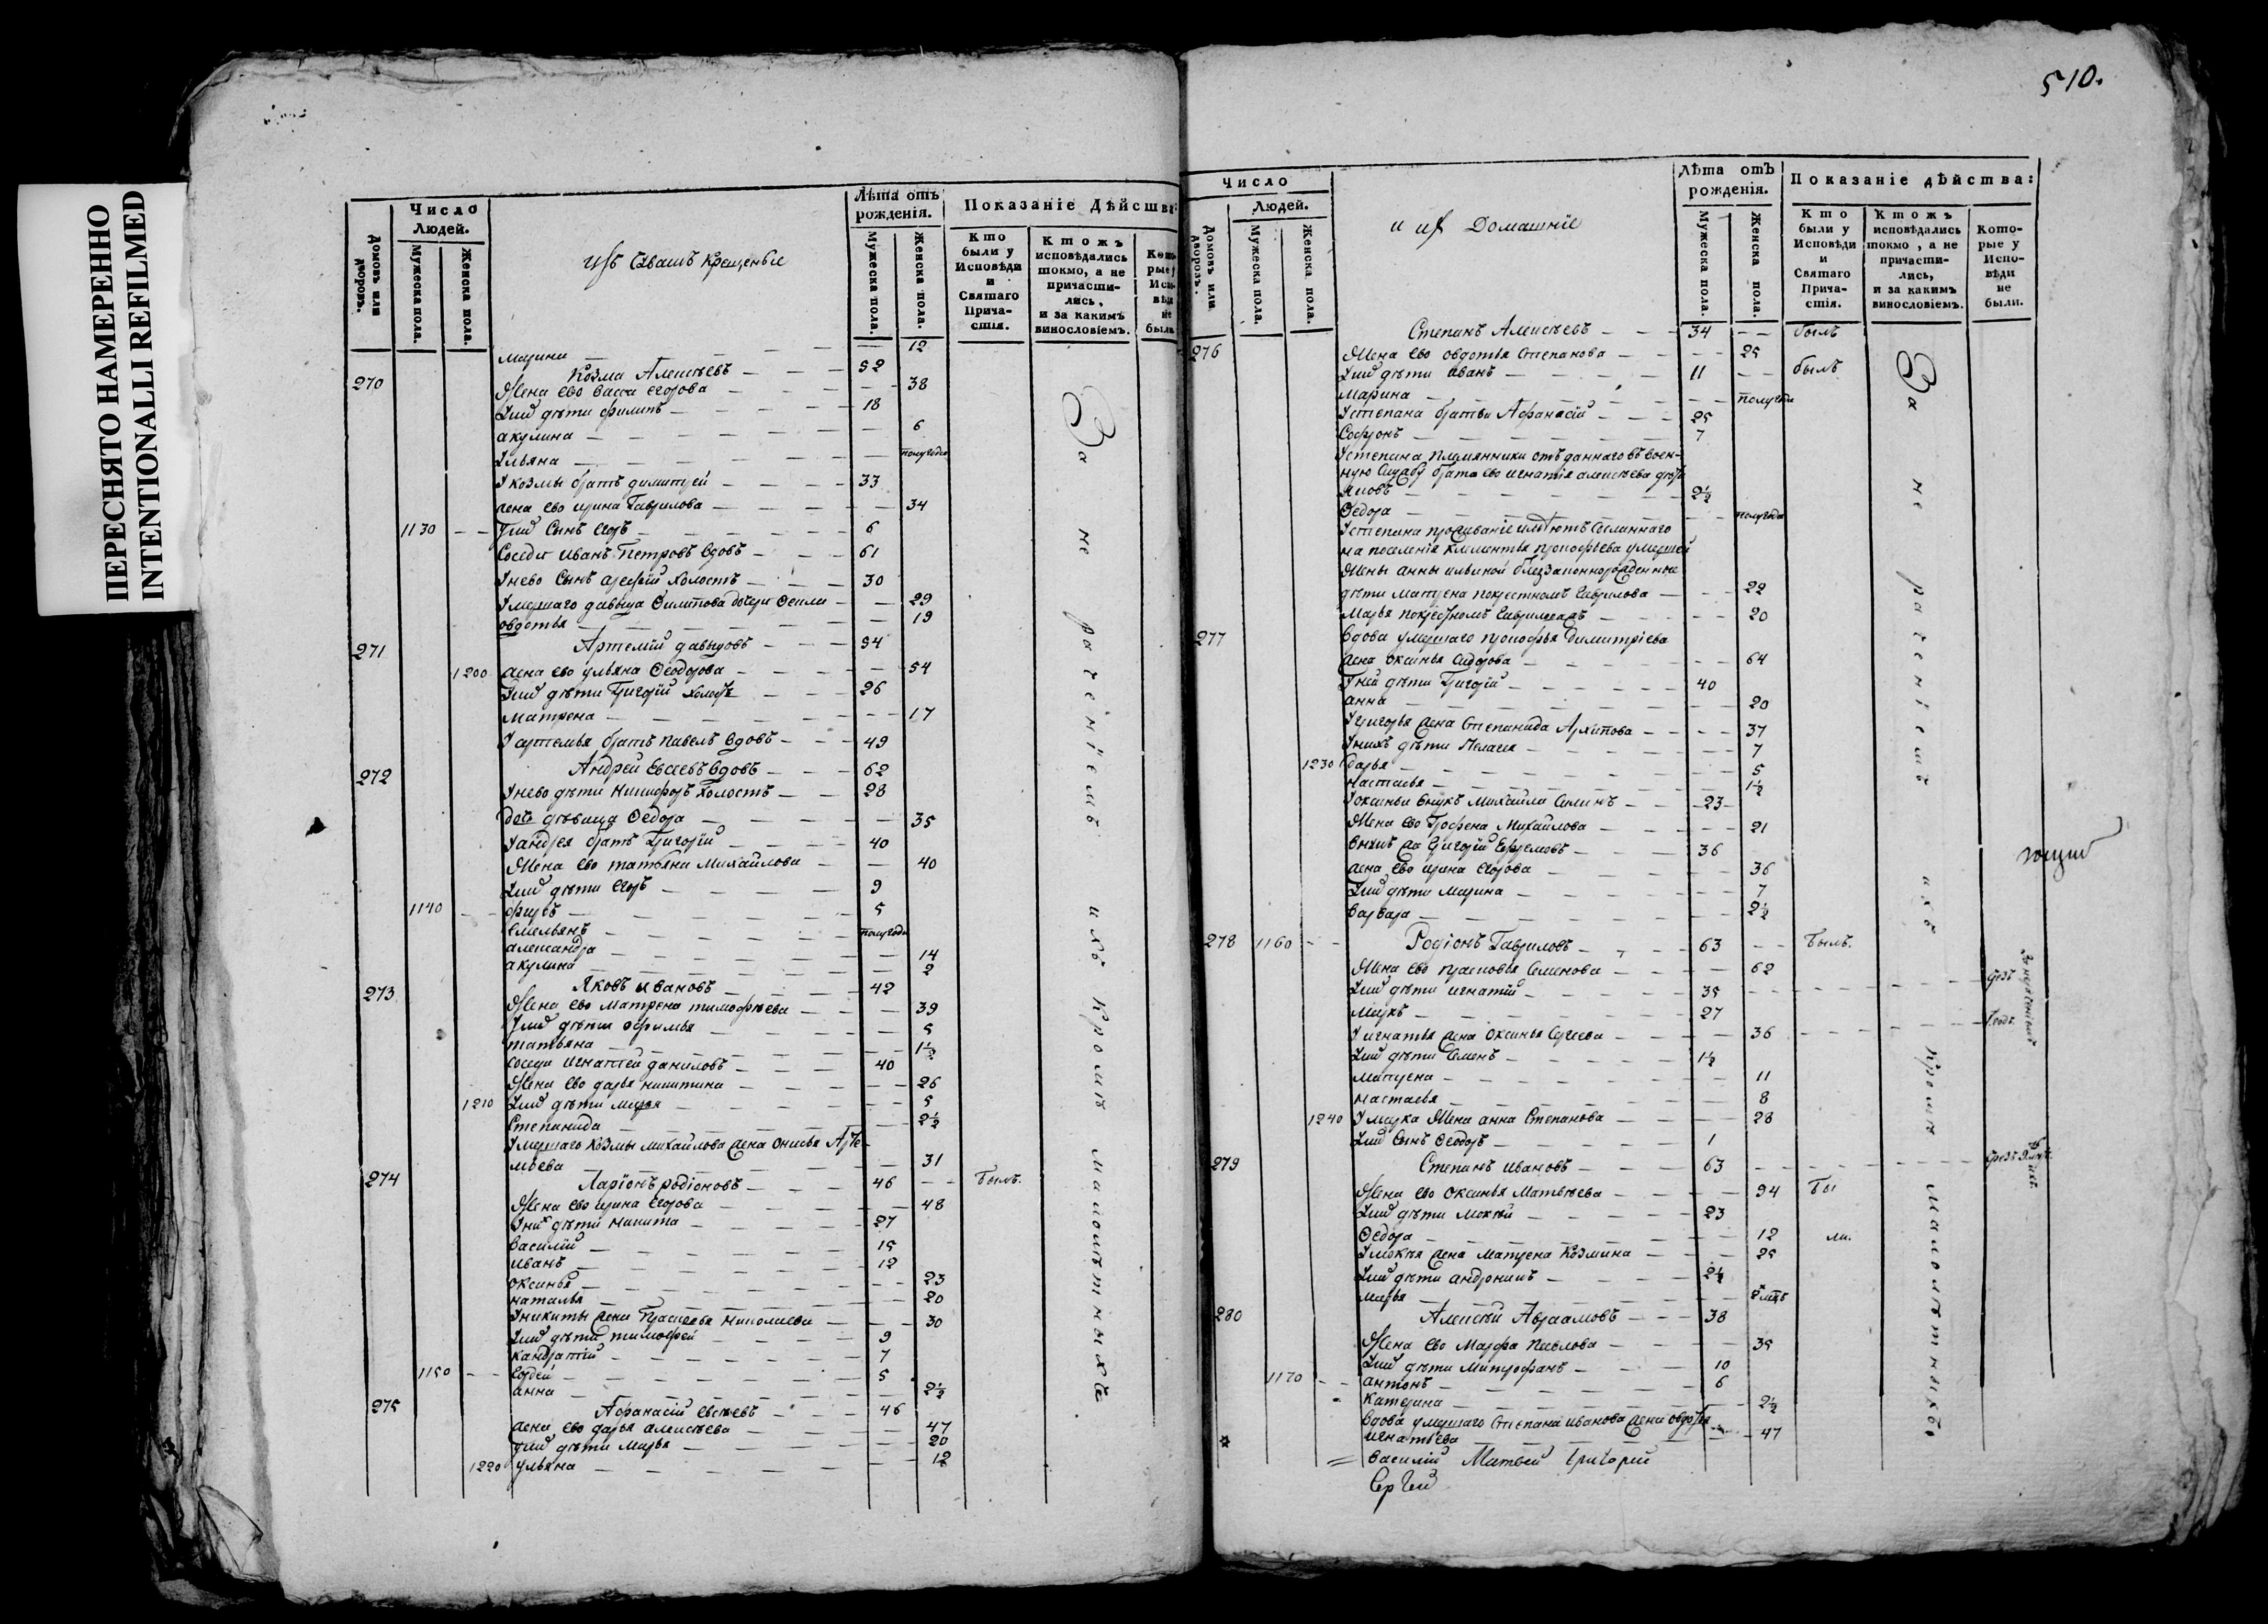 ПЕРЕСНЯТО НАМЕРЕННО
INTENTIONALLI REFILMED
Число
Людей.
Домовъ или дворовъ.
Мужеска пола.
Женска пола.
Крещеные
Лѣта отъ
рожденія.
Мужеска пола.
Женска пола.
Показаніе Дѣйства:
Кто
были у
Исповѣди
и
Святаго
Прича-
стія.
Ктожъ
исповѣдались
токмо, а не
причасти-
лись,
и за какимъ
винословіемъ.
марина 12
270 Козма Алексѣевъ 52
Жена ево васса егорова 38
дѣти филипъ 18
акулина 6
ульяна полугода
У козмы братъ димитрей 33
жена ево ирина Гаврилова 34
1130 Сынъ егоръ 6
Соседи иванъ Петровъ вдовъ 61
Унево Сынъ арефій холостъ 30
Умершаго давыда Филипова дочери 29
овдотья 19
271 Артемій давыдовъ 54
1200 жена ево ульяна Феодорова 54
дѣти Григорій холостъ 26
матрена 17
У артемья братъ павелъ вдовъ 49
272 Андрей Евсеевъ вдовъ 62
Унево дѣти никифоръ холостъ 28
дочь дѣвица Федора 35
У андрея братъ Григорій 40
Жена ево татьяна михайлова 40
дѣти егоръ 9
1140 фирсъ 5
емельянъ полугода
александра 14
акулина 2
273 Яковъ ивановъ 42
Жена ево матрена тимофѣева 39
дѣти 5
татьяна 1½
соседи игнатей даниловъ 40
Жена ево дарья никитина 26
1210 дѣти марья 5
степанида 2½
Умершаго козмы михайлова жена онисья Арте-
мьева 31
274 Ларіонъ родіоновъ 46 былъ.
Жена ево ирина егорова 48
Уних дѣти никита 27
василій 15
иванъ 12
оксинья 23
наталья 20
Уникиты жена николаева 30
дѣти тимофей 9
кандратій 7
1150 5
анна 2½
275 Афанасій евсѣевъ 46
жена ево дарья алексѣева 47
дѣти марья 20
1220 ульяна 12
За не раченіемъ ихъ кромѣ малолѣтныхъ
510.
Число
Людей.
Домовъ или дворовъ.
Мужеска пола.
Женска пола.
и их Домашніе
Лѣта отъ
рожденія.
Мужеска пола.
Женска пола.
Показаніе дѣйства:
Кто
были у
Исповѣди
и
Святаго
Прича-
стія.
Ктожъ
исповѣдались
токмо, а не
причасти-
лись,
и за какимъ
винословіемъ.
Кото-
рые у
Испо-
вѣди
не
были.
276 Степанъ Алексѣевъ 34 былъ
Жена ево овдотья степанова 25
дѣти иванъ 11 былъ
марина полугода
Устепана братья Афанасій 25
Софронъ 7
Устепана племянники отъданнаго въ воен-
ную службу брата ево игнатія алексѣева дѣти
Яковъ 2½
Федора полугода
Устепана проживаніе имѣютъ сосланнаго
на поселенія климентья прокофьева умершей
Жены анны ильиной
дѣти матрена гаврилова 22
марья 20
277 вдова умершаго прокофья димитріева
жена оксинья сидорова 64
У ней дѣти Григорій 40
анна 20
Угригорья жена степанида Архипова 37
Унихъ дѣти пелагея 7
1230 дарья 5
настасья 1½
У оксиньи внукъ михайла 23
Жена ево михайлова 21
внукъ Григорій ефремовъ 36
жена ево ирина егорова 36
дѣти марина 7
варвара 2½
278 1160 Родіонъ Гавриловъ 63 былъ.
Жена ево прасковья семенова 62
дѣти игнатій 35
маркъ 27
У игнатья жена оксинья сергеева 36
дѣти семенъ 1½
матрена 11
настасья 8
1240 У марка Жена анна степанова 28
Сынъ Феодоръ 1
279 Степанъ ивановъ 63
Жена ево оксинья матвѣева 54 бы
дѣти мокѣй 23
Федора 12 ли.
Умокѣя жена матрена козмина 25
дѣти андроникъ 2½
марья
280 Алексѣй Авраамовъ 38
Жена ево марфа павлова 35
дѣти митрофанъ 10
1170 антонъ 6
катерина 2½
вдова умершаго степана иванова жена овдотья
игнатьева 47
василій Матвей григорей
Сергей
За не раченіемъ ихъ кромѣ малолѣтныхъ.